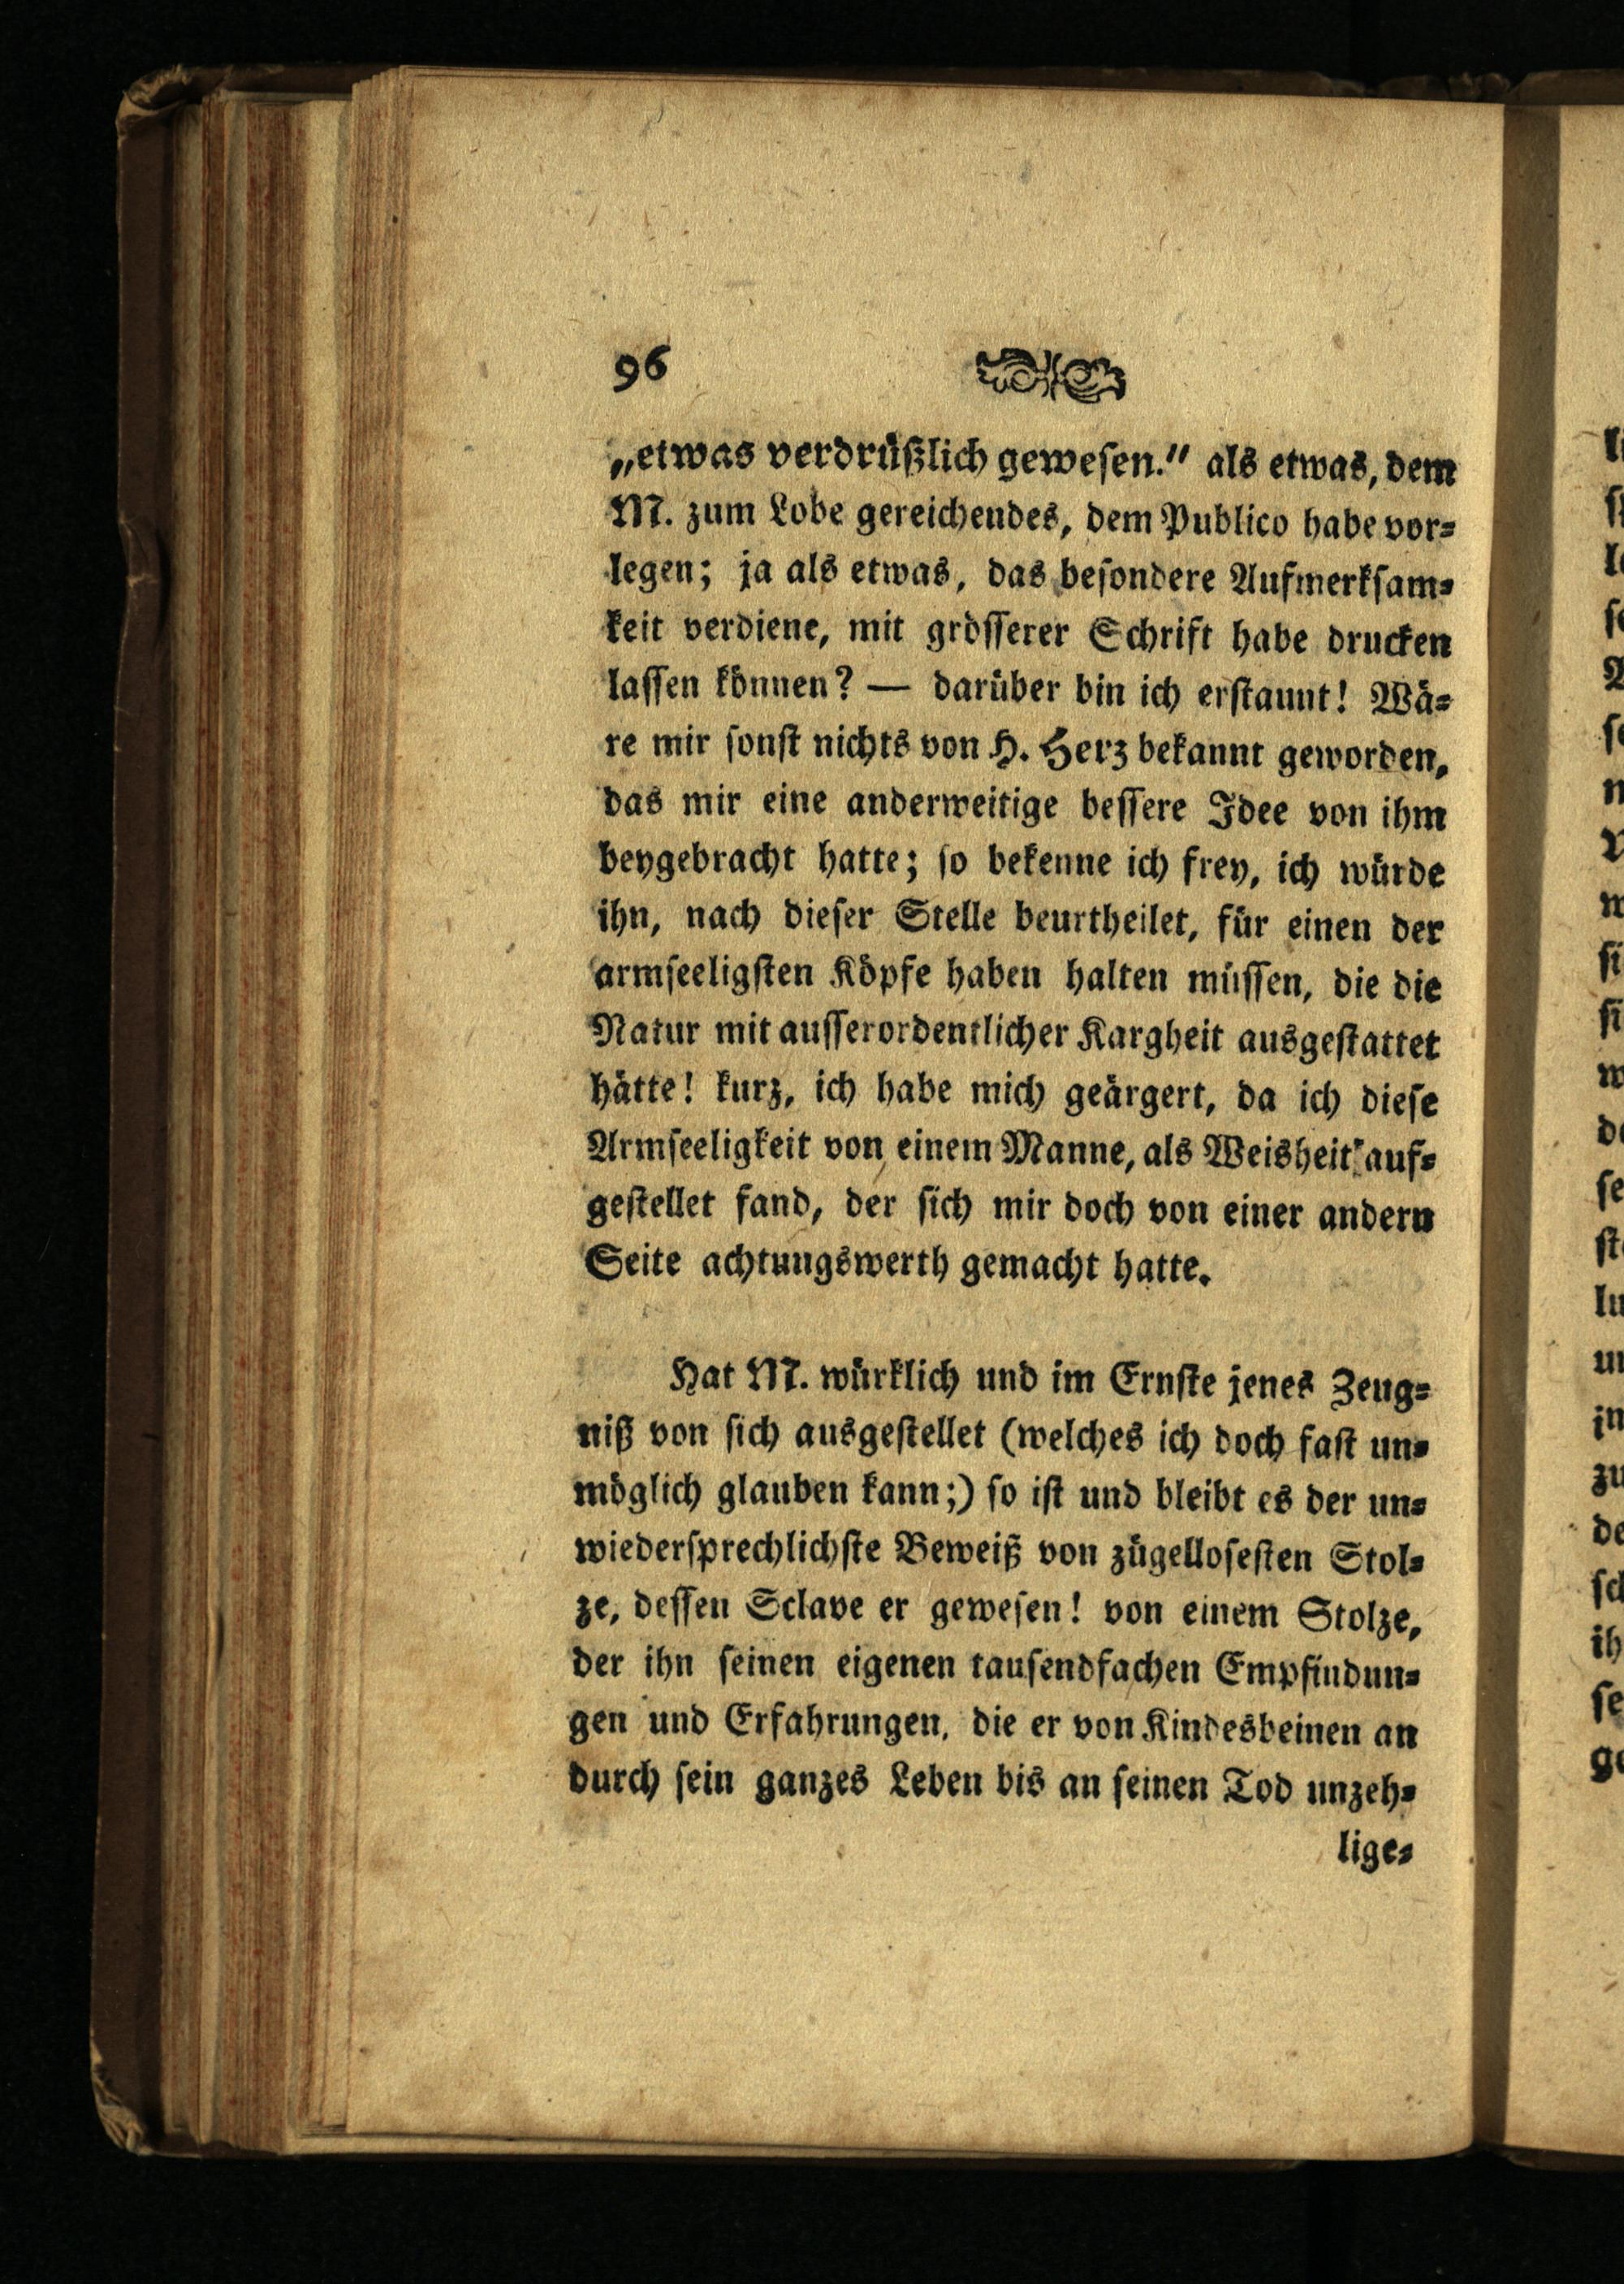 96
„etwas verdrüßlich gewesen." als etwas, dem
M. zum Lobe gereichendes, dem Publico habe vor=
legen; ja als etwas, das besondere Aufmerksam=
keit verdiene, mit grösserer Schrift habe drucken
lassen können? — darüber bin ich erstaunt! Wä=
re mir sonst nichts von H. Herz bekannt geworden,
das mir eine anderweitige bessere Idee von ihm
beygebracht hatte; so bekenne ich frey, ich würde
ihn, nach dieser Stelle beurtheilet, für einen der
armseeligsten Köpfe haben halten müssen, die die
Natur mit ausserordentlicher Kargheit ausgestattet
hätte! kurz, ich habe mich geärgert, da ich diese
Armseeligkeit von einem Manne, als Weisheit auf=
gestellet fand, der sich mir doch von einer andern
Seite achtungswerth gemacht hatte.
Hat M. würklich und im Ernste jenes Zeug=
niß von sich ausgestellet (welches ich doch fast un=
möglich glauben kann;) so ist und bleibt es der un=
wiedersprechlichste Beweiß von zügellosesten Stol=
ze, dessen Sclave er gewesen! von einem Stolze,
der ihn seinen eigenen tausendfachen Empfindun=
gen und Erfahrungen, die er von Kindesbeinen an
durch sein ganzes Leben bis an seinen Tod unzeh=
lige=